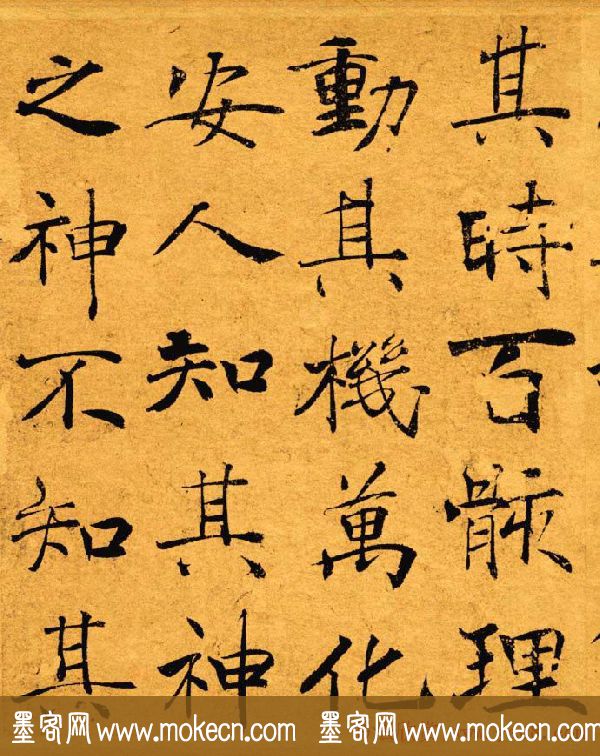 其時百骸理
動其機萬化
安人知其神
之神不知其
墨客网 www.mokecn.com 墨客网 www.mokecn.com